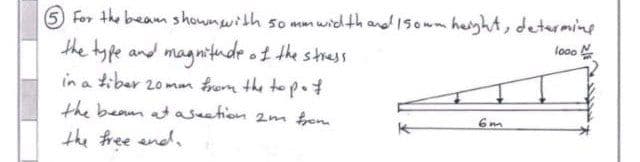 ⑤ For the beam shown with 50 mm width and 150mm height, determine
the type and magnitude of the stress
1000 N/m
in a fiber 20 mm from the top of
the beam at a section 2m from
6m
the free end.